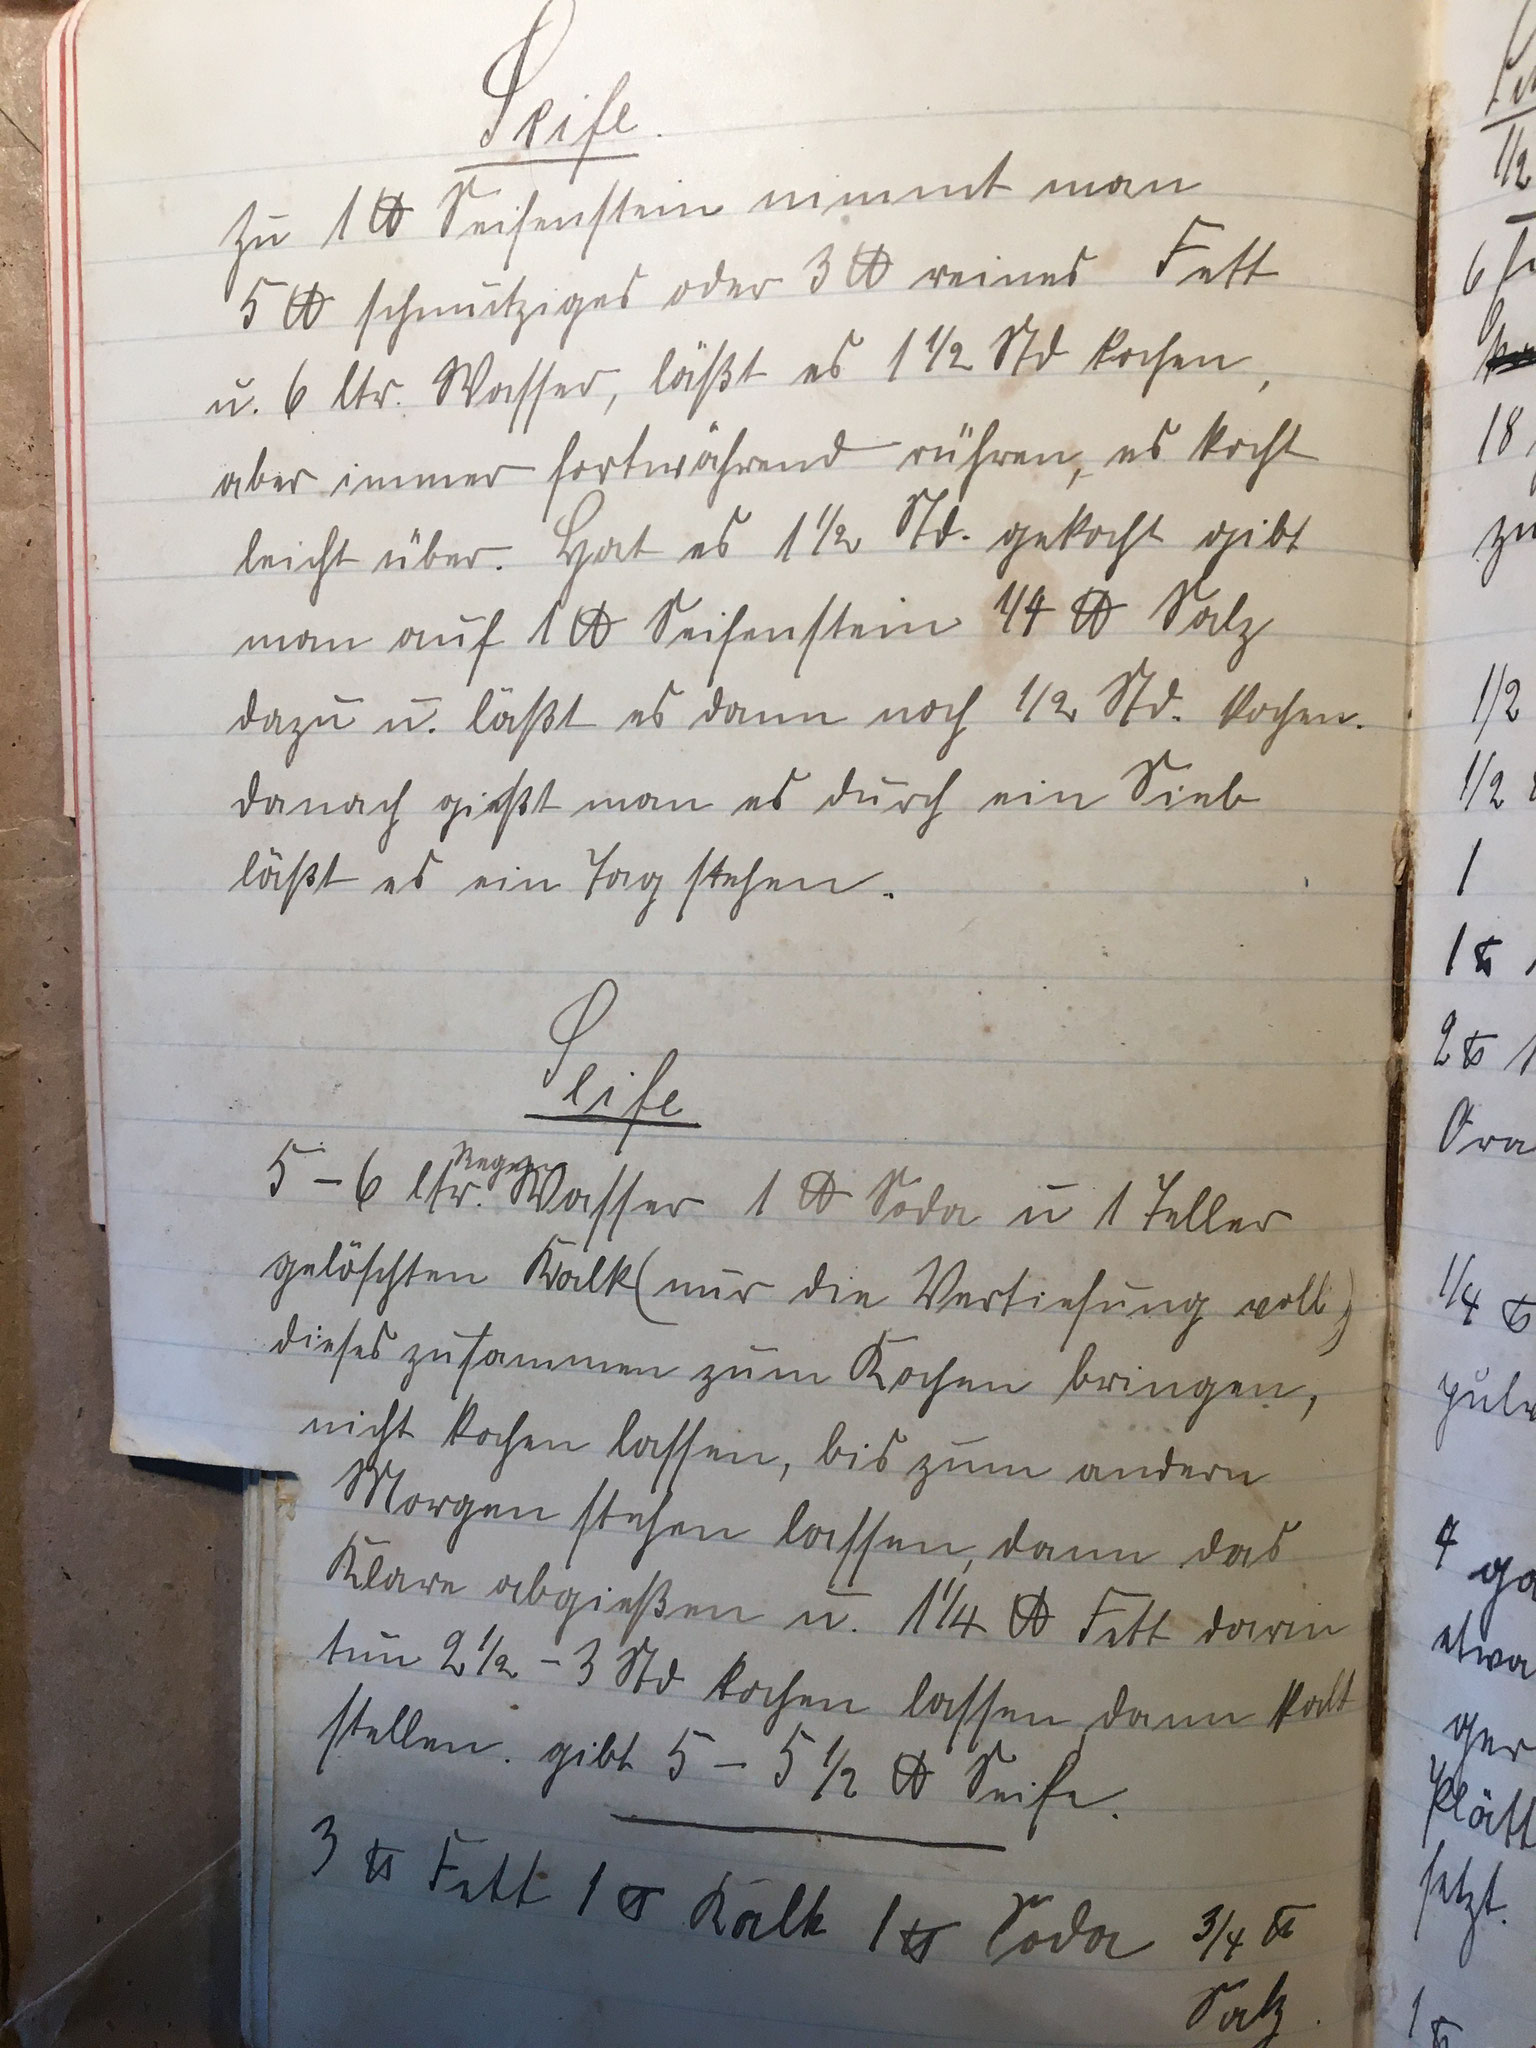 Seife.
Zu 1 ℔ Seifenstein nimmt man
5 ℔ schmutziges oder 3 ℔ reines Fett
u. 6 ltr. Wasser, läßt es 1 1/2 Std kochen,
aber immer fortwährend rühren, es kocht
leicht über. Hat es 1 1/2 Std. gekocht gibt
man auf 1 ℔ Seifenstein 1/4 ℔ Salz
dazu u. läßt es dann noch 1/2 Std. kochen.
danach gießt man es durch ein Sieb
läßt es ein Tag stehen.
Seife
Regen
5 – 6 ltr. Wasser 1 ℔ Soda u 1 Teller
gelöschten Kalk (nur die Vertiefung voll)
dieses zusammen zum Kochen bringen,
nicht kochen lassen, bis zum andern
Morgen stehen lassen, dann das
Klare abgießen u. 1 1/4 ℔ Fett darin
tun 2 1/2 – 3 Std kochen lassen, dann kalt
stellen. gibt 5 – 5 1/2 ℔ Seife.
3 ℔ Fett 1 ℔ Kalk 1 ℔ Soda 3/4 ℔
Salz.
1/2
6
18
zu
1/2
1/2
1
1 ℔
2 ℔ 1
1/4 ℔
4
etwa
1 ℔